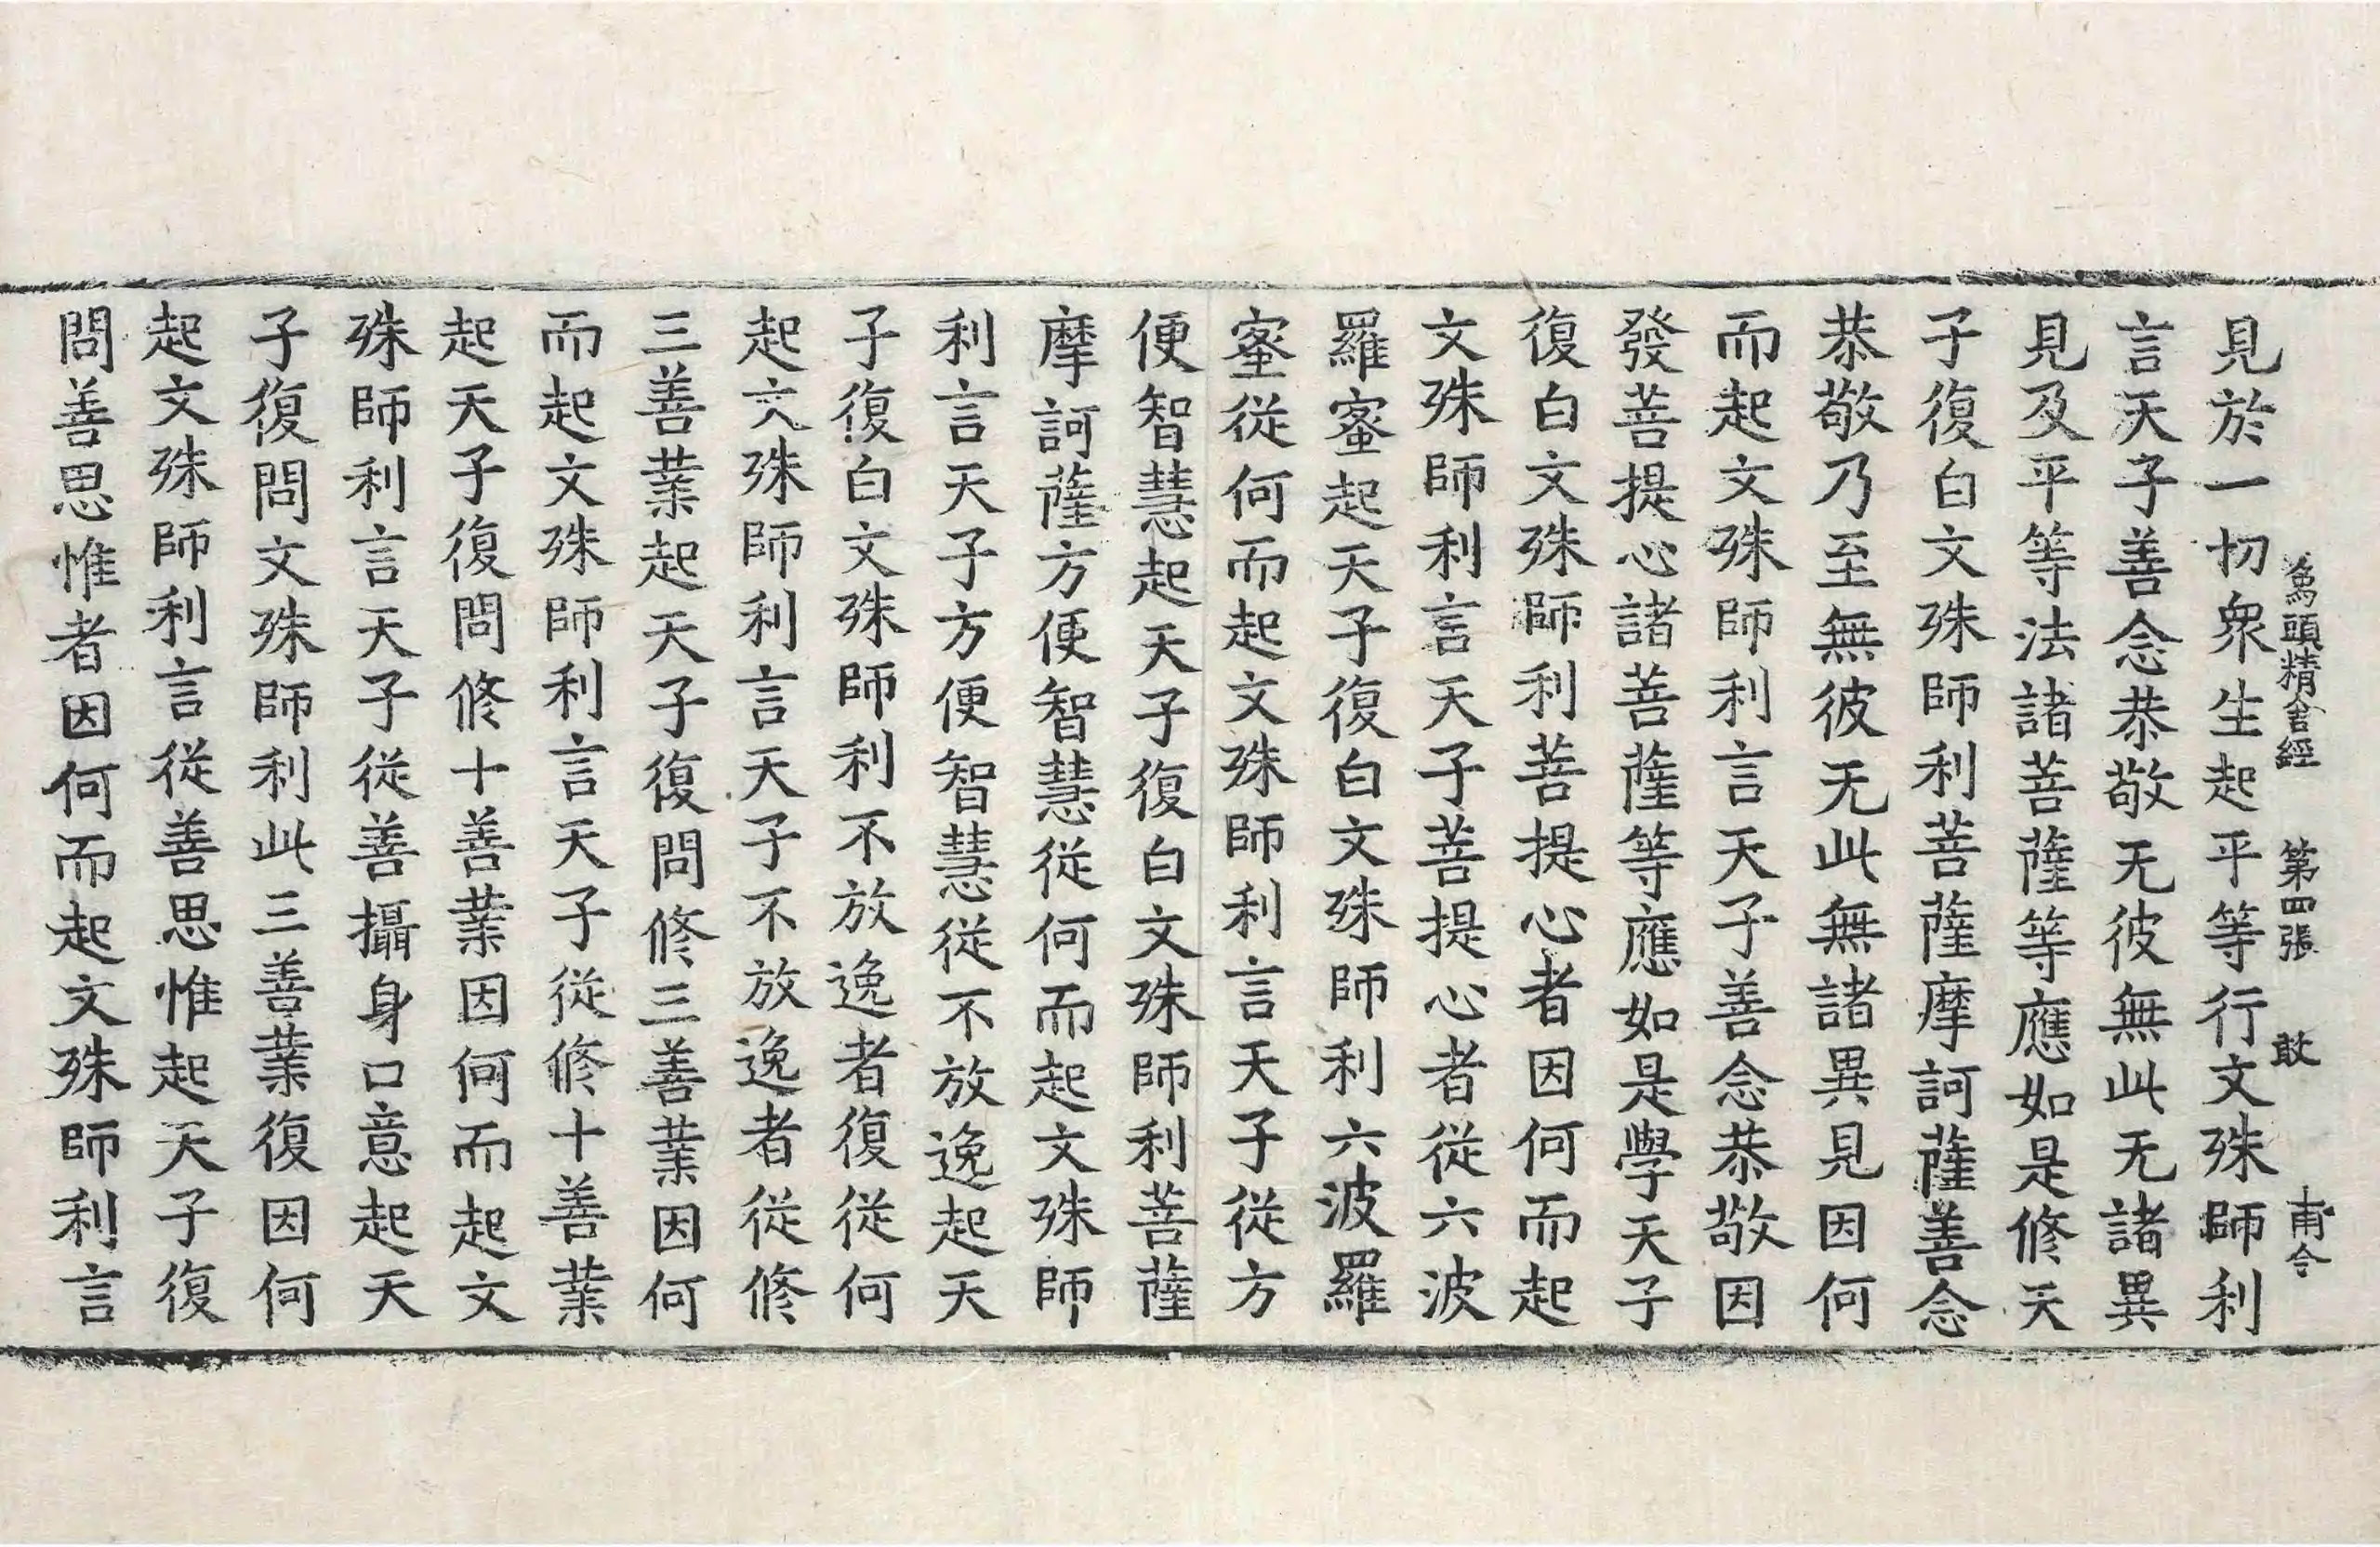 爲頭精舍經 第四張 敢 甫令
見於一切衆生起平等行文殊師利
言天子善念恭敬无彼無此无諸異
見及平等法諸菩薩等應如是修天
子復白文殊師利菩薩摩訶薩善念
恭敬乃至無彼无此無諸異見因何
而起文殊師利言天子善念恭敬因
發菩提心諸菩薩等應如是學天子
復白文殊師利菩提心者因何而起
文殊師利言天子菩提心者從六波
羅蜜起天子復白文殊師利六波羅
蜜從何而起文殊師利言天子從方
便智慧起天子復白文殊師利菩薩
摩訶薩方便智慧從何而起文殊師
利言天子方便智慧從不放逸起天
子復白文殊師利不放逸者復從何
起文殊師利言天子不放逸者從修
三善業起天子復問修三善業因何
而起文殊師利言天子從修十善業
起天子復問修十善業因何而起文
殊師利言天子從善攝身口意起天
子復問文殊師利此三善業復因何
起文殊師利言從善思惟起天子復
問善思惟者因何而起文殊師利言